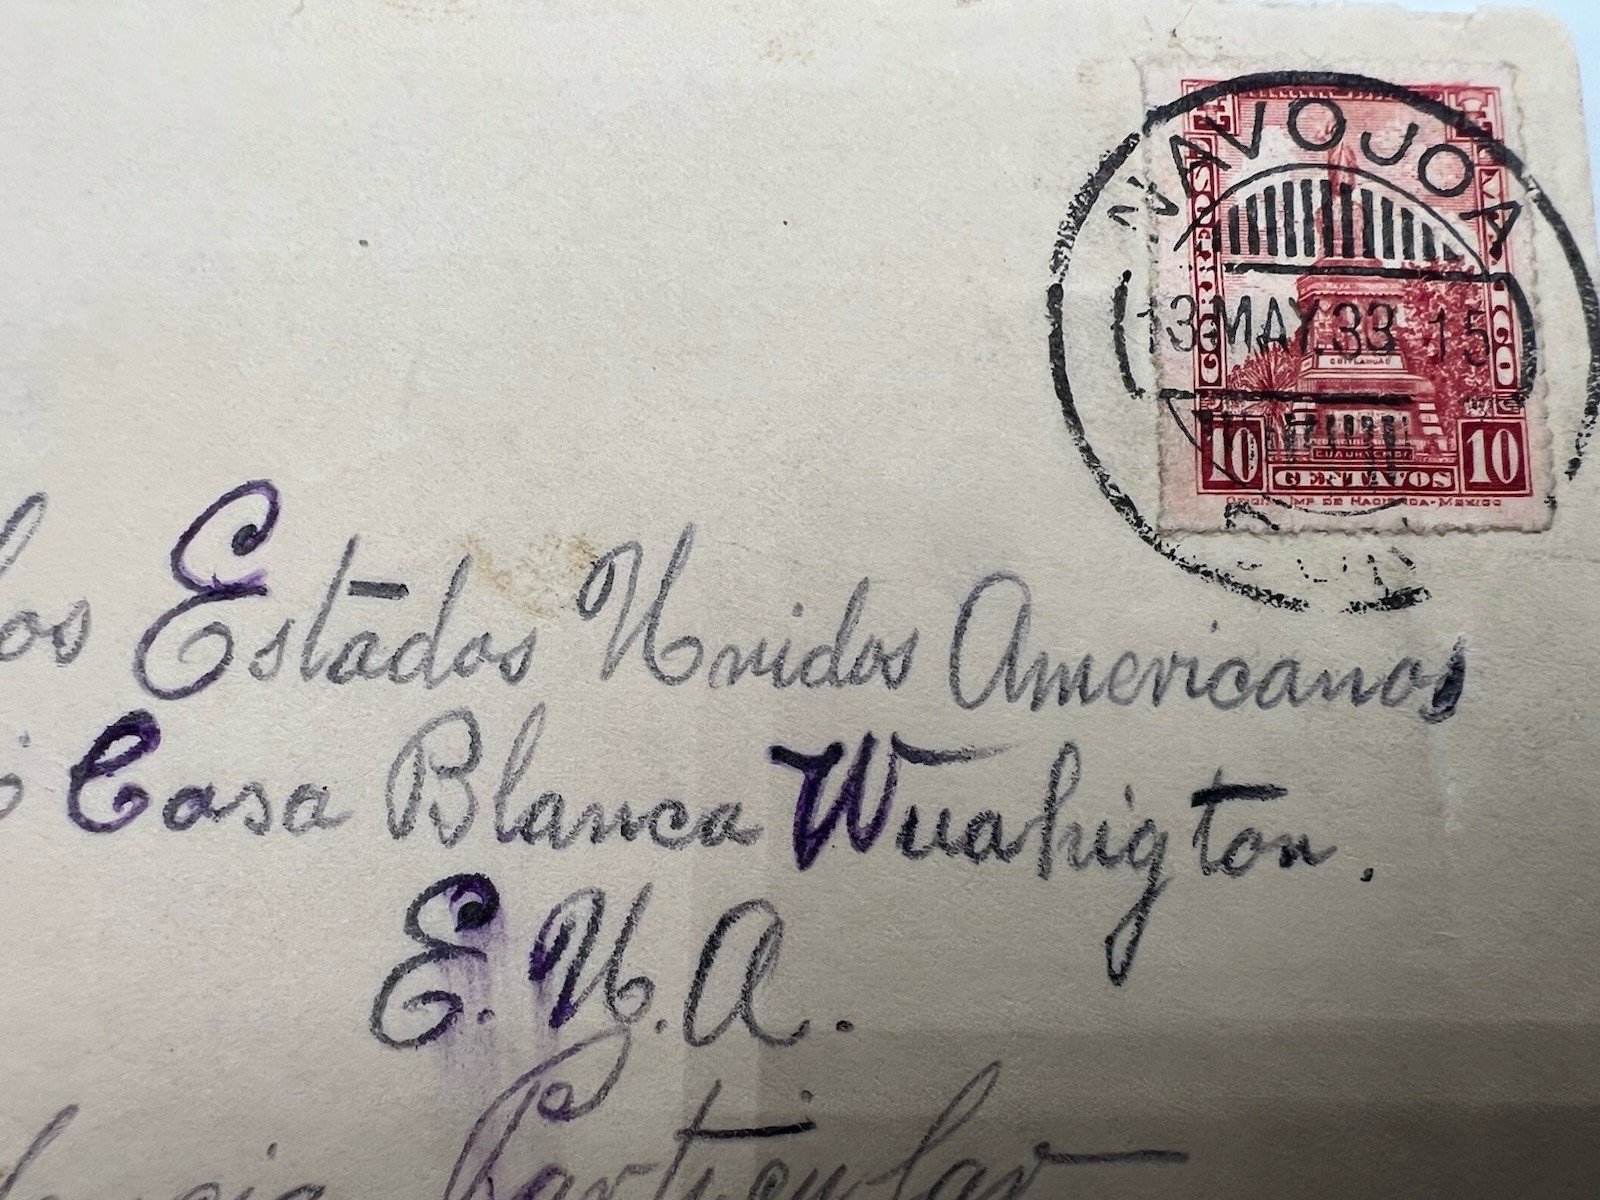 NAVOJOA
CORREOS MEXICO
13 MAY. 33 15
CUAUHTEMOC
10 CENTAVOS 10
OFICINA IMP. DE HACIENDA-MEXICO
los Estados Unidos Americanos
Casa Blanca Wuahigton.
E.U.A.
Particular